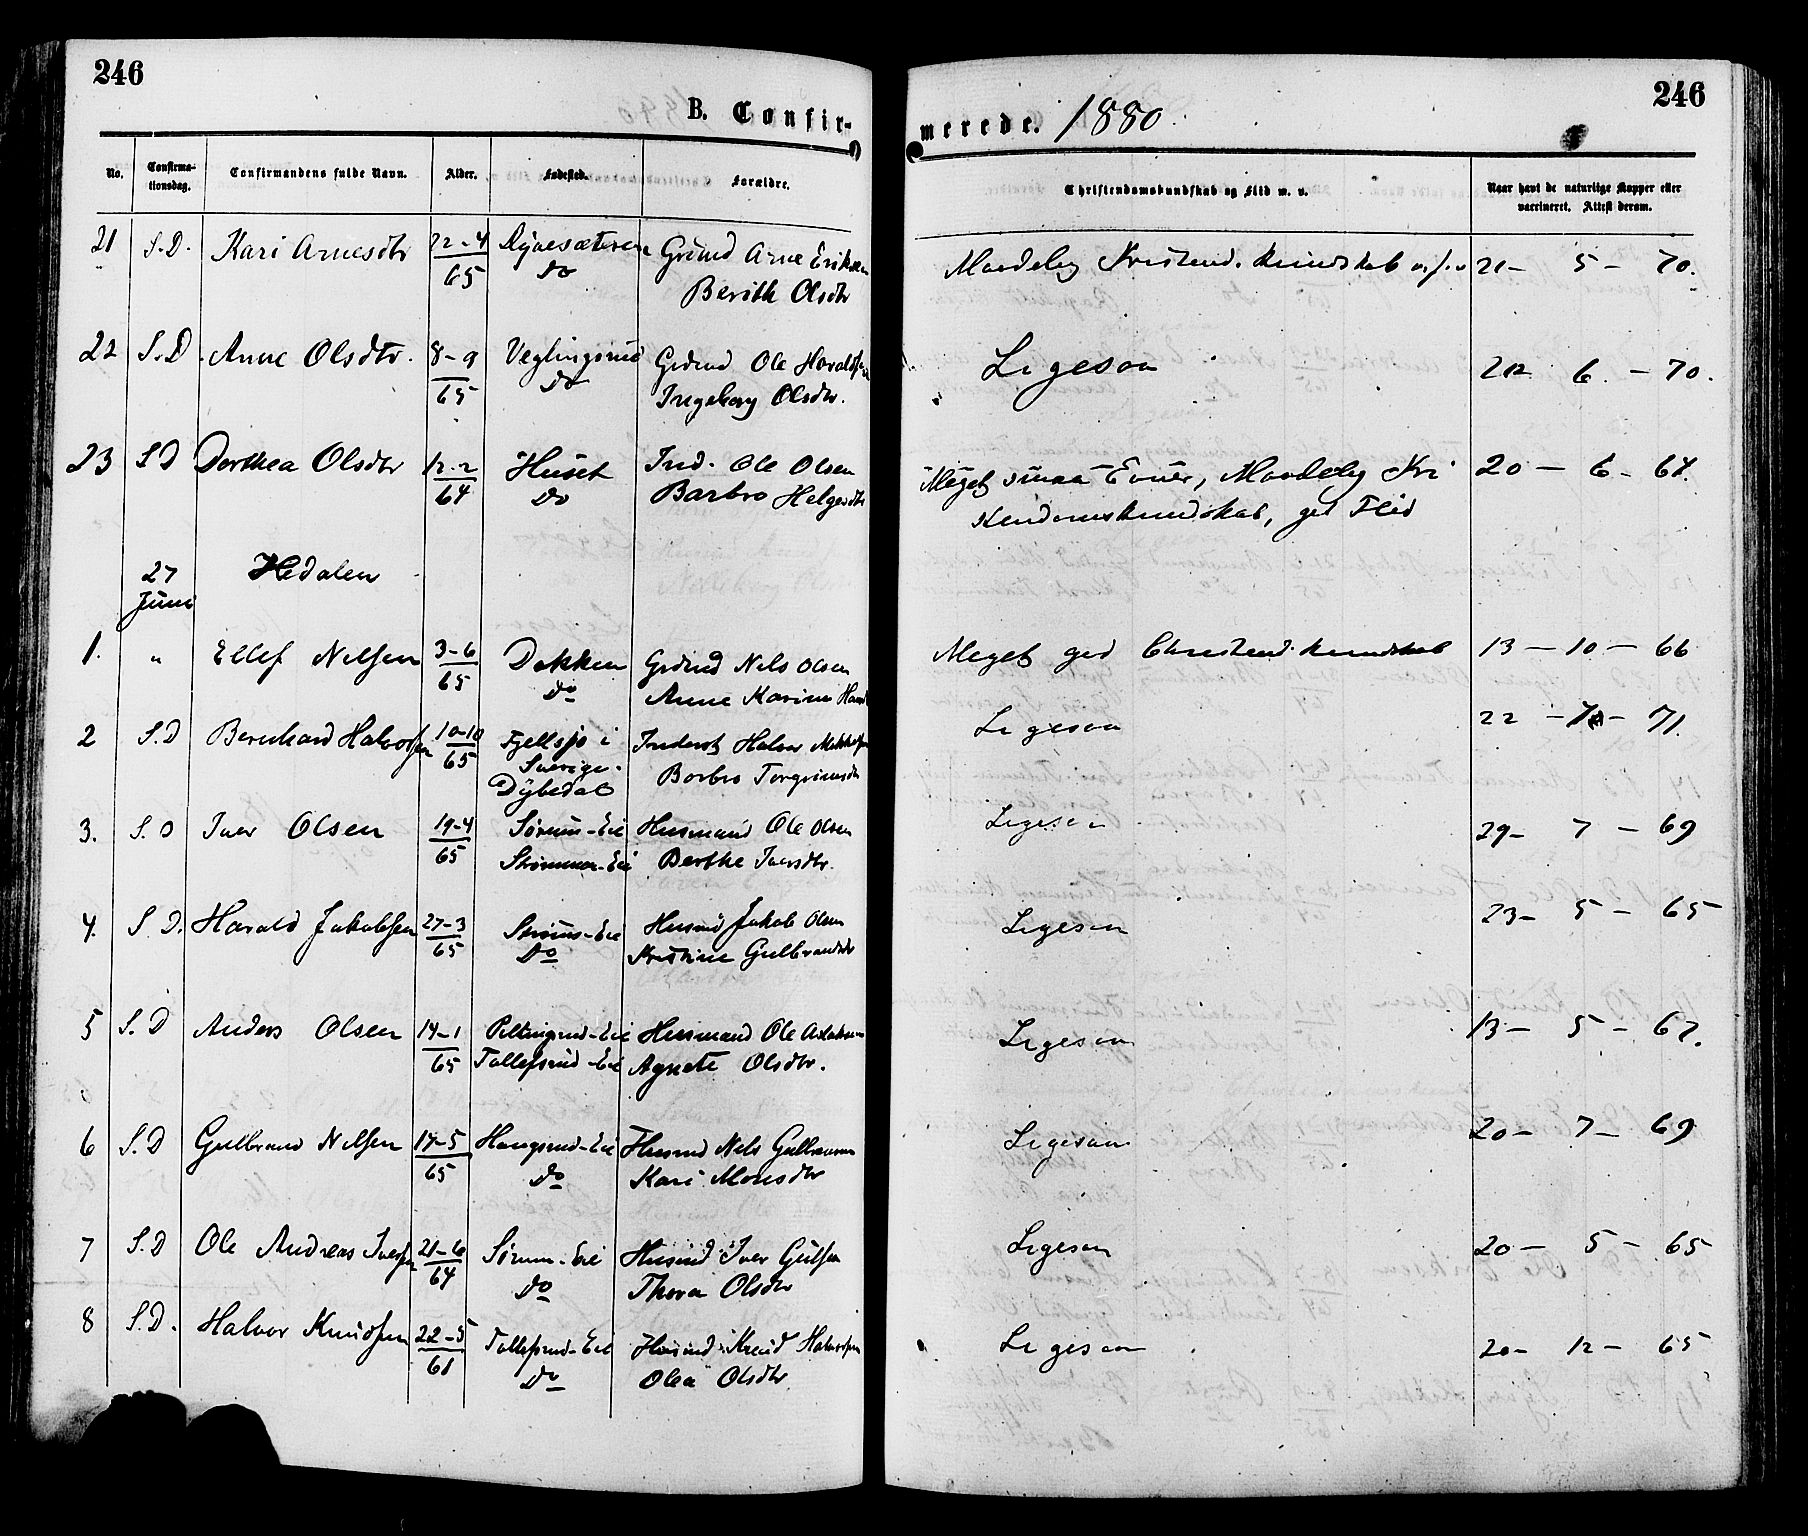 246
246
B. Confir-
merede. 1880
No.
Confirma-
tionsdag.
Confirmandens fulde Navn.
Alder.
Fødested.
Forældre.
Christendomskundskab og Flid m. v.
Naar havt de naturlige Kopper eller
vaccineret. Attest derom.
21 S.D. Kari Arnesdtr 22-4 Grbrd Arne Eriksen 21- 5 - 70.
65 Do Berith Olsdtr
22 S.D. Anne Olsdtr. 8-9 Grbrd Ole Haraldsen Ligesaa 6. - 70.
65 Do Ingeborg Olsdtr.
23 S D Dorthea Olsdtr 12-2 Huset Ind. Ole Olsen Meget smaa Evner, Maadelig Kri 20 - 6 -
64 Do Barbro Helgesdtr stendomskundskab, god Flid
27
Juni
Hedalen
1. " Ellef Nilsen 3-6 Dokken Grbrd Nels Olsen Meget god Christend. kundskab 13 - 10 - 66
65 Do Anne Karine
2 S.D Bernhard Halvorsen 10-10 i Halvor Ligesaa 22 - - 71.
65 Sverige. Barbro Torgrimsdtr
3. S.D Iver Olsen 19-4 Sørum-Eie Husmand Ole Olsen Ligesaa 29- 7 - 69
65 Strømmen-Eie Berthe Iversdtr.
4. S D. Harald Jakobsen 27-3 Husmd Jakob Olsen Ligesaa 23- 5 - 65
65 Do Kristine Gulbrandsdtr
5 S. D Anders Olsen 14-1 Husmand Ole Ligesaa 13- 5 - 67.
65 Tollefsrud-Eie Agnete Olsdtr.
6 S.D Gulbrand Nilsen 17-5 Haugsrud-Eie Husmd Nels Gulbrandsen Ligesaa 20- 7- 69
65 Do Kari Monsdtr
7 S.D Ole Andreas Iversen 21-6 Sørum-Eie Husmd Iver Gulsen Ligesaa 20 - 5 - 65
64 Do Thora Olsdtr
8 S.D. Halvor Knudsen 22-5 Tollefsrud-Eie Husmd Knud Halvorsen Ligesaa 20- 12 - 65
Do Olea Olsdtr